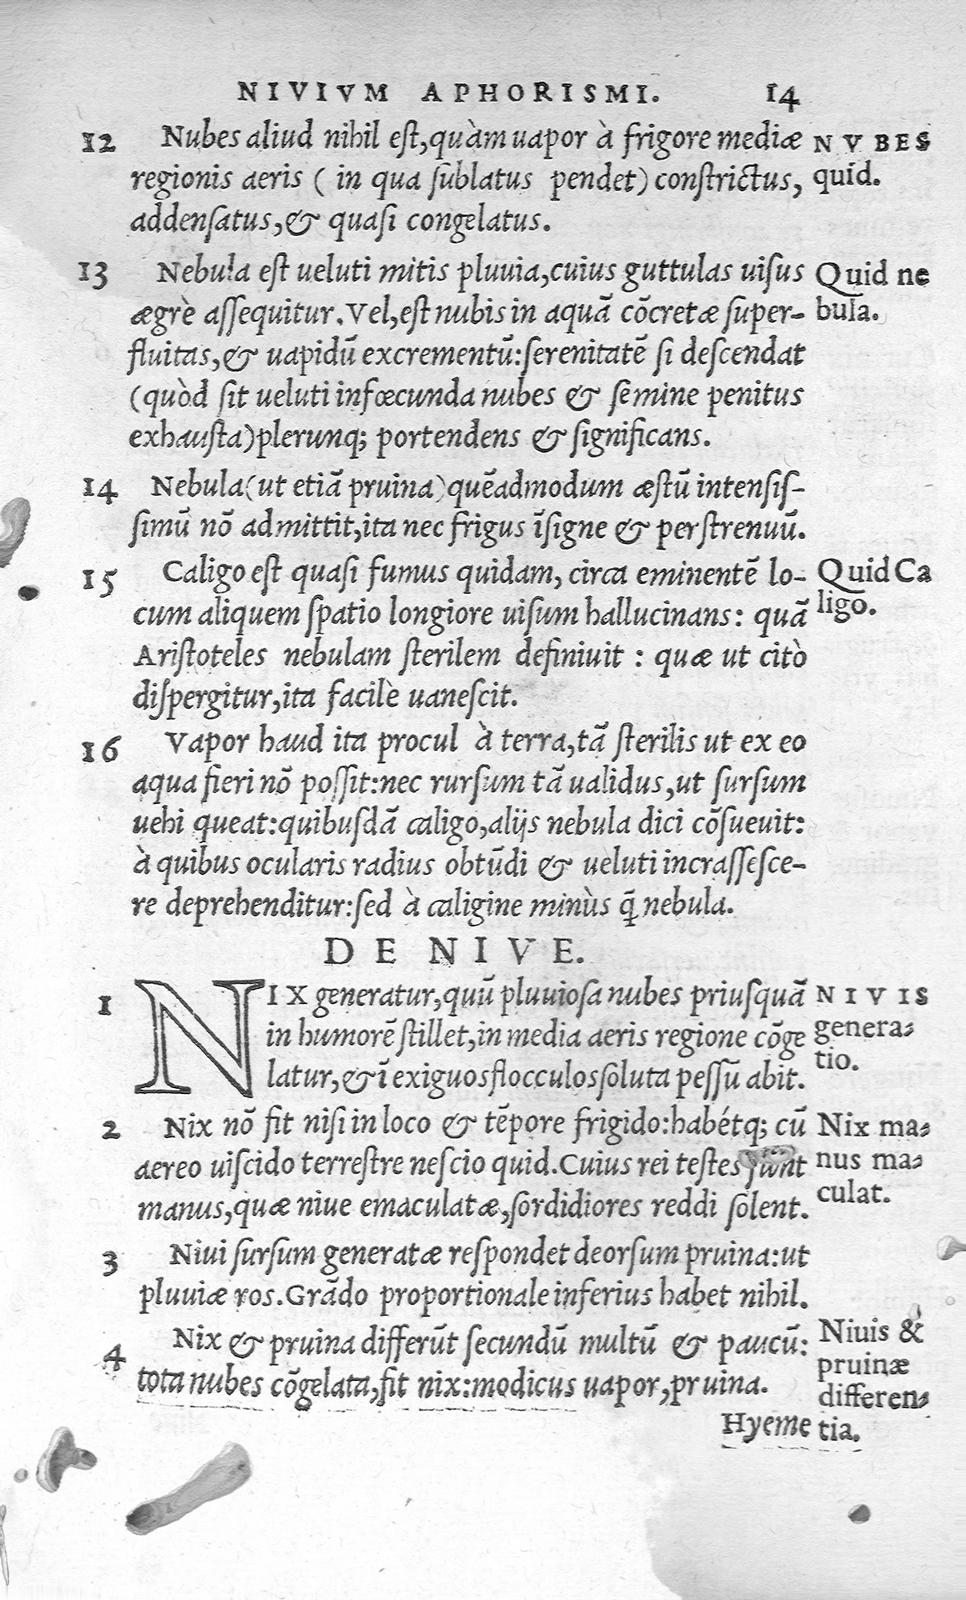 NIVIVM APHORISMI. 14
12 Nubes aliud nihil est, quàm uapor à frigore mediæ
NVBES
regionis aeris ( in qua sublatus pendet) constrictus,
quid.
addensatus, & quasi congelatus.
13 Nebula est ueluti mitis pluuia, cuius guttulas uisus
Quid ne
ægrè assequitur. Vel, est nubis in aquā cōcretæ super-
bula.
fluitas, & uapidū excrementū: serenitatē si descendat
(quòd sit ueluti infœcunda nubes & semine penitus
exhausta) plerunq; portendens & significans.
14 Nebula (ut etiā pruina) quēadmodum æstū intensis-
simū nō admittit, ita nec frigus īsigne & perstrenuū.
15 Caligo est quasi fumus quidam, circa eminentē lo-
Quid Ca
cum aliquem spatio longiore uisum hallucinans: quā
ligo.
Aristoteles nebulam sterilem definiuit : quæ ut citò
dispergitur, ita facilè uanescit.
16 Vapor haud ita procul à terra, tā sterilis ut ex eo
aqua fieri nō possit: nec rursum tā ualidus, ut sursum
uehi queat: quibusdā caligo, alijs nebula dici cōsueuit:
à quibus ocularis radius obtūdi & ueluti incrassesce-
re deprehenditur: sed à caligine minùs q̄ nebula.
DE NIVE.
1 NIX generatur, quū pluuiosa nubes priusquā
NIVIS
in humorē stillet, in media aeris regione cōge
genera-
latur, & ī exiguos flocculos soluta pessū abit.
tio.
2 Nix nō fit nisi in loco & tēpore frigido: habétq; cū
Nix ma-
aereo uiscido terrestre nescio quid. Cuius rei testes sunt
nus ma-
manus, quæ niue emaculatæ, sordidiores reddi solent.
culat.
3 Niui sursum generatæ respondet deorsum pruina: ut
pluuiæ ros. Grādo proportionale inferius habet nihil.
4 Nix & pruina differūt secundū multū & paucū:
Niuis &
tota nubes cōgelata, fit nix: modicus uapor, pruina.
pruinæ
differen-
Hyeme
tia.